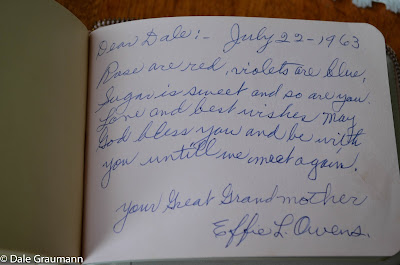 Dear Dale:- July 22-1963
Rose are red, violets are blue,
Sugar is sweet and so are you.
Love and best wishes may
God bless you and be with
you untill we meet again.
your Great Grandmother
Effie L. Owens.
© Dale Graumann